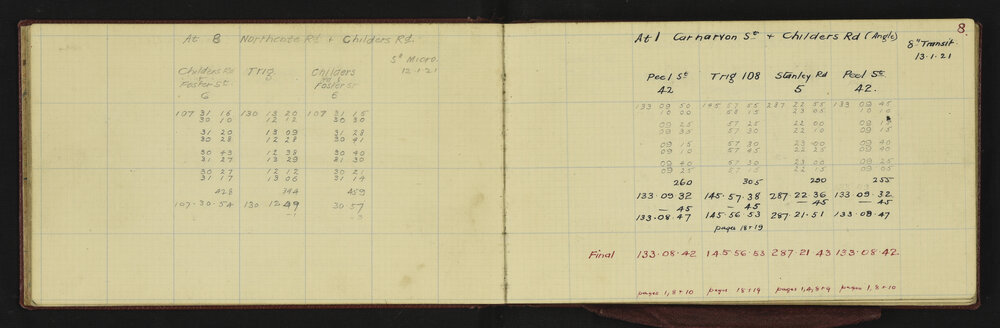 At B Northcote Rd + Childers Rd.
5" Micro.
12.1.21
Childers Rd Trig Childers
Foster St. Foster St
6 6
107 31 16 130 13 20 107 31 15
30 10 12 12 30 30
31 20 13 09 31 28
30 28 12 28 30 41
30 43 12 38 30 40
31 27 13 29 31 30
30 27 12 12 30 21
31 17 13 06 31 14
428 344 459
107-30-54 130 12 49 30-57
-1 -3
8.
At 1 Carnarvon St + Childers Rd (Angle)
8" Transit.
13.1.21
Peel St Trig 108 Stanley Rd Peel St.
42 5 42.
133 09 50 145 57 55 287 22 55 133 09 45
10 00 58 15 23 05 10 10
09 25 57 25 22 00 09 15
09 35 57 30 22 10 09 15
09 15 57 30 23 00 09 40
09 10 57 45 22 25 09 40
09 40 57 30 23 00 09 25
09 25 57 15 22 15 09 05
260 305 290 255
133.09.32 145.57.38 287.22.36 133.09.32
— 45 — 45 — 45 — 45
133.08.47 145.56.53 287.21.51 133.08.47
pages 18+19
Final 133.08.42 145.56.53 287.21 43 133.08.42.
pages 1,8+10 pages 18+19 pages 1,4,8+9 pages 1,8+10